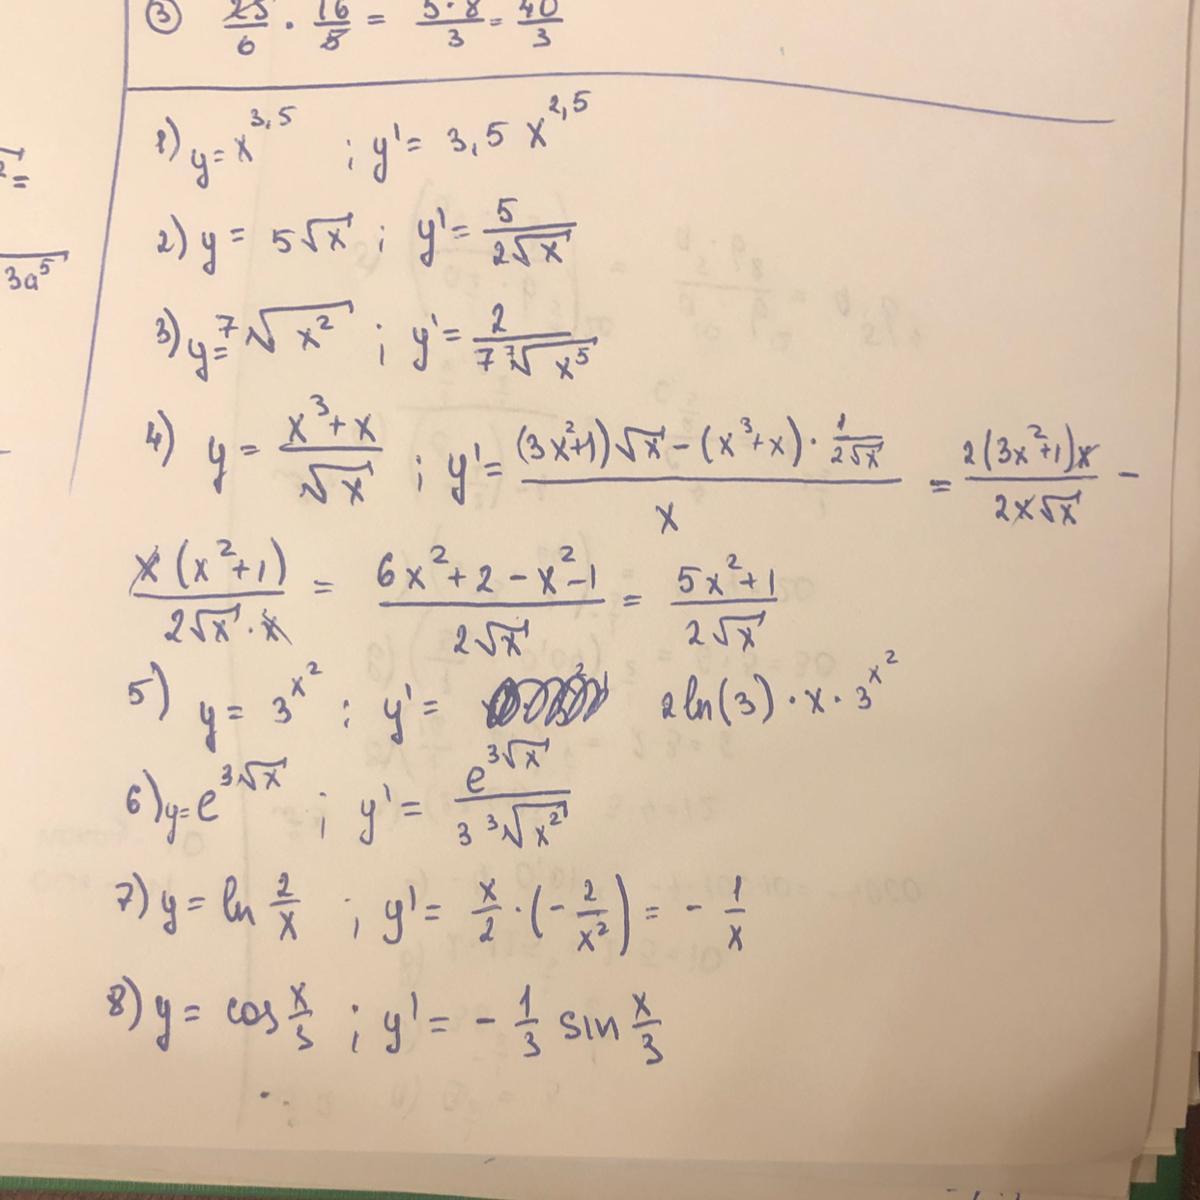 ③ 25/6 · 16/5 = 5·8/3 = 40/3
²=
3a⁵
1) y = x^3,5 ; y' = 3,5 x^2,5
2) y = 5√x ; y' = 5/(2√x)
3) y = ⁷√x² ; y' = 2/(7 ⁷√x⁵)
4) y = (x³+x)/√x ; y' = ((3x²+1)√x − (x³+x) · 1/(2√x))/x = 2(3x²+1)x/(2x√x) −
x(x²+1)/(2√x · x) = (6x²+2−x²−1)/(2√x) = (5x²+1)/(2√x)
5) y = 3^x² ; y' = 2ln(3) · x · 3^x²
6) y = e^3√x ; y' = e^3√x/(3 ³√x²)
7) y = ln 2/x ; y' = x/2 · (−2/x²) = −1/x
8) y = cos x/3 ; y' = −1/3 sin x/3